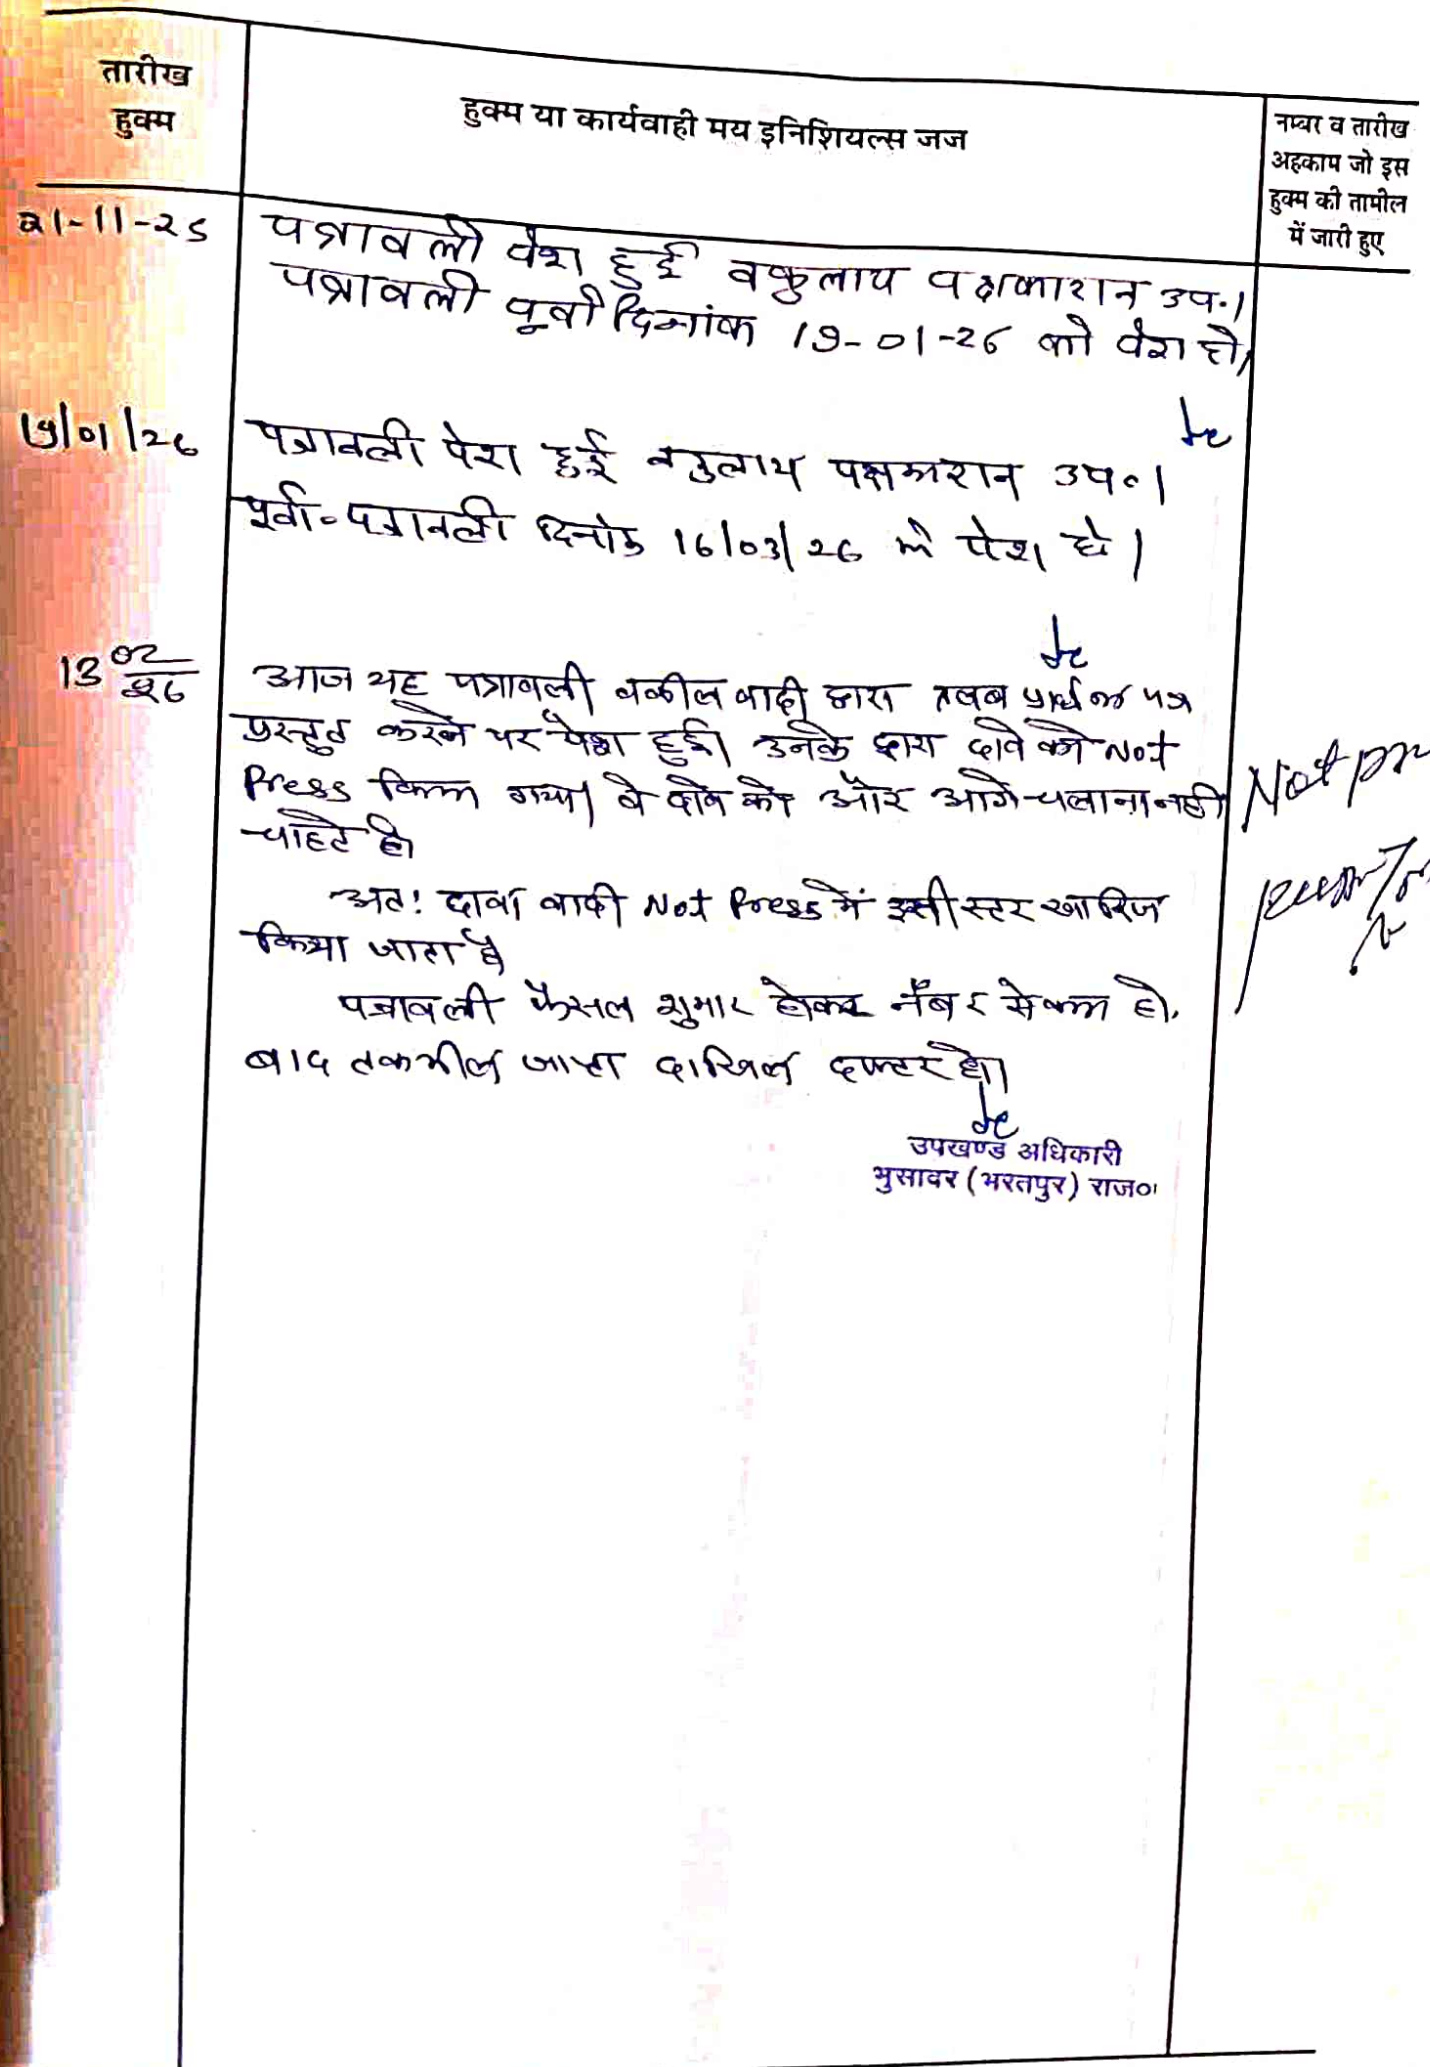 तारीख
हुक्म
हुक्म या कार्यवाही मय इनिशियल्स जज
नम्बर व तारीख
अहकाम जो इस
हुक्म की तामील
में जारी हुए
21-11-25
पत्रावली पेश हुई वकुलाय पक्षकारान उप०।
पत्रावली पूर्वा दिनांक 19-01-26 को पेश हो।
19/01/26
पत्रावली पेश हुई वकुलाय पक्षकारान उप०।
पूर्वा० पत्रावली दिनांक 16/03/26 को पेश हो।
13 02/26
आज यह पत्रावली वकील वादी द्वारा तलब प्रार्थना पत्र
प्रस्तुत करने पर पेश हुई। उनके द्वारा दावे को Not
Press किया गया। वे दावे को और आगे चलाना नही
चाहते है।
अतः दावा वादी Not Press में इसी स्तर खारिज
किया जाता है
पत्रावली फैसल शुमार होकर नंबर से कम हो.
बाद तकमील जाप्ता दाखिल दफ्तर हो।
Not
उपखण्ड अधिकारी
भुसावर (भरतपुर) राज०